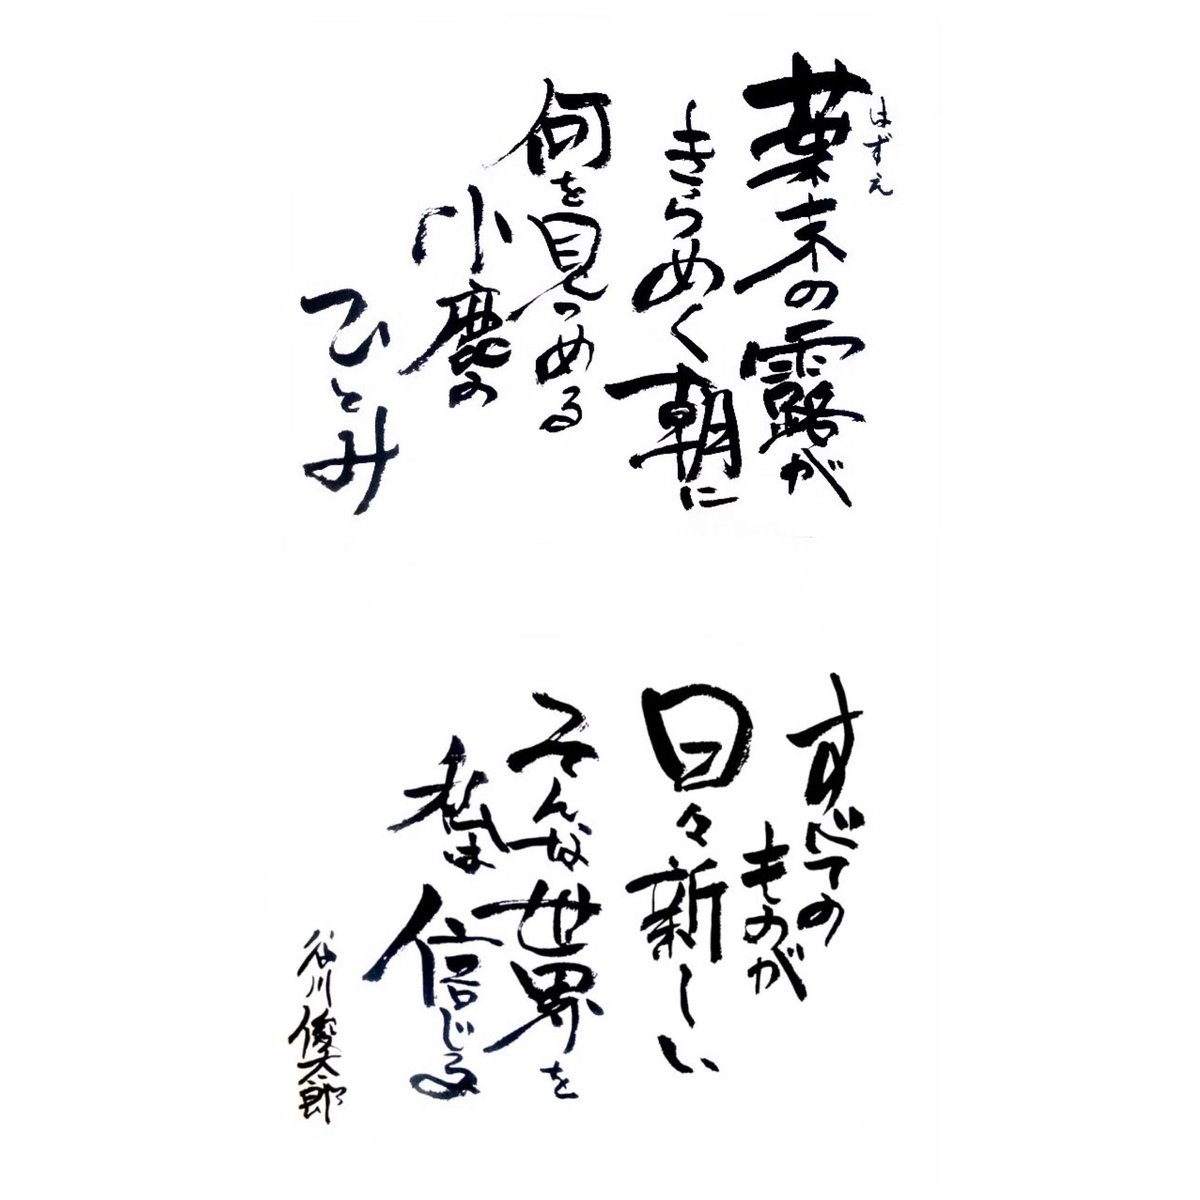 はずえ
葉末の露が
きらめく朝に
何を見つめる
小鹿の
ひとみ
すべての
ものが
日々新しい
そんな世界を
私は
信じる
谷川俊太郎